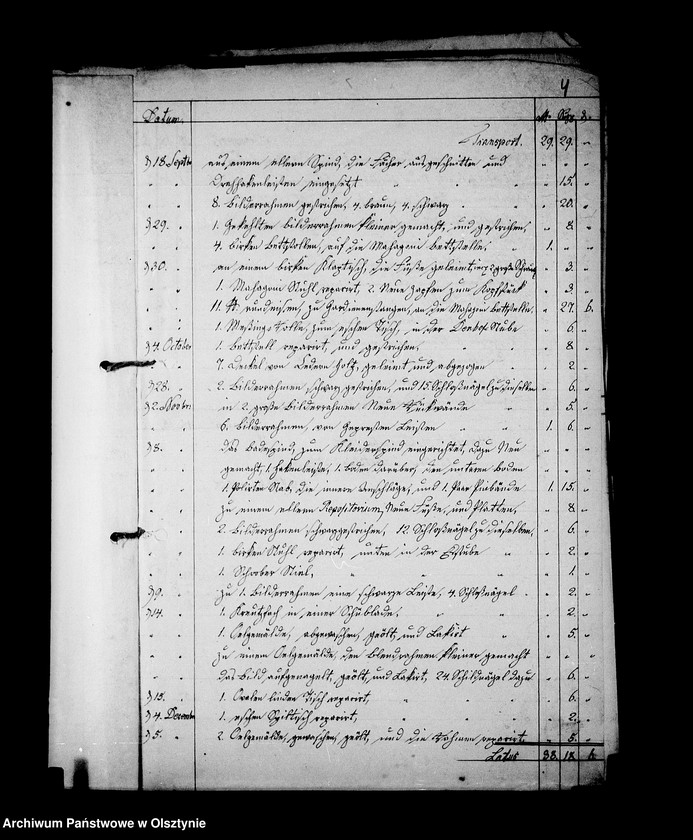 4
Datum. rt. Sgr. d.
Transport. 29. 29. "
d 18. Septbr aus einem eltern Spind, die Fächer ausgeschnitten und " " "
" " Drehhakenleisten eingesetzt " " " 15. "
" " 8. Bilderrahmen gestrichen, 4. braun, 4. schwarz " " 20. "
d 29. " 1. Gekehlten bilderrahmen kleiner gemacht, und gestrichen, " 8 "
" " 4. birken Bettstollen, auf die Mahagoni bettstelle, " 1. " "
d 30. " an einem birken Klaptisch, die Füße geleimt, " 3. "
" " 1. Mahagoni Stuhl reparirt, 2. Neue Zapfen zum Kopfstück " 3. "
" " 11. ft. rundeisen, zu Gardienenstangen, an die Mahagon Bettstelle, " 27. 6.
" " 1. Messing Rolle, zum eschen Tisch, in der Donhof Stube " 6. "
d 4. October 1. bettstell reparirt, und gestrichen, " 8 "
" " 7. Deckel von Zedern Holz, geleimt und abgezogen " " 2 "
d 28. " 2. Bilderrahmen, schwarz gestrichen, und 15. Schloßnägel zu dieselben " 6. "
d 2. Novbr: in 2. große Bilderrahmen Neue Rückwände " " 5. "
" " 6. Bilderrahmen, von Gepresten Leisten " " 1. 6. "
d 8. " das Badespind, zum Kleiderspind eingerichtet, dazu Neu " " "
" " gemacht, 1. Hakenleiste, 1. boden darüber, den untern boden " " "
" " 1. Polirten Stab, die innere Anschläge, und 1. Paar 1. 15. "
" " zu einem eltern Repositorium, Neue Füße, und Platten, " 8 "
" " 2. Bilderrahmen schwarzgestrichen, 12. Schloßnägel zu dieselben, " 6. "
" " 1. birken Stuhl reparirt, unten in der Eßstube " " 2. "
" " 1. Schrober Stiel, " " " 1. "
d 9. " zu 1. Bilderrahmen eine schwarze Leiste, 4. Schloßnägel " " 2. "
d 14. " 1. Kreutzfach in einer Schublade, " " " 2. "
" " 1. Oelgemälde, abgewaschen, geölt, und Lakirt " " 5. "
" " zu einem Oelgemälde, den Blendrahmen kleiner gemacht " " "
" " das Bild, aufgenagelt, geölt, und Lakirt, 24. Schildnägel dazu " 6. "
d 15. " 1. Ovalen linden Tisch reparirt, " " " 6. "
d 4. Decembr 1. eschen Spiltisch reparirt, " " " 2. "
d 5. " 2. Oelgemälde, gewaschen, geölt, und die Rahmen reparirt " 5. "
Latus 38. 18. 6.
Archiwum Państwowe w Olsztynie